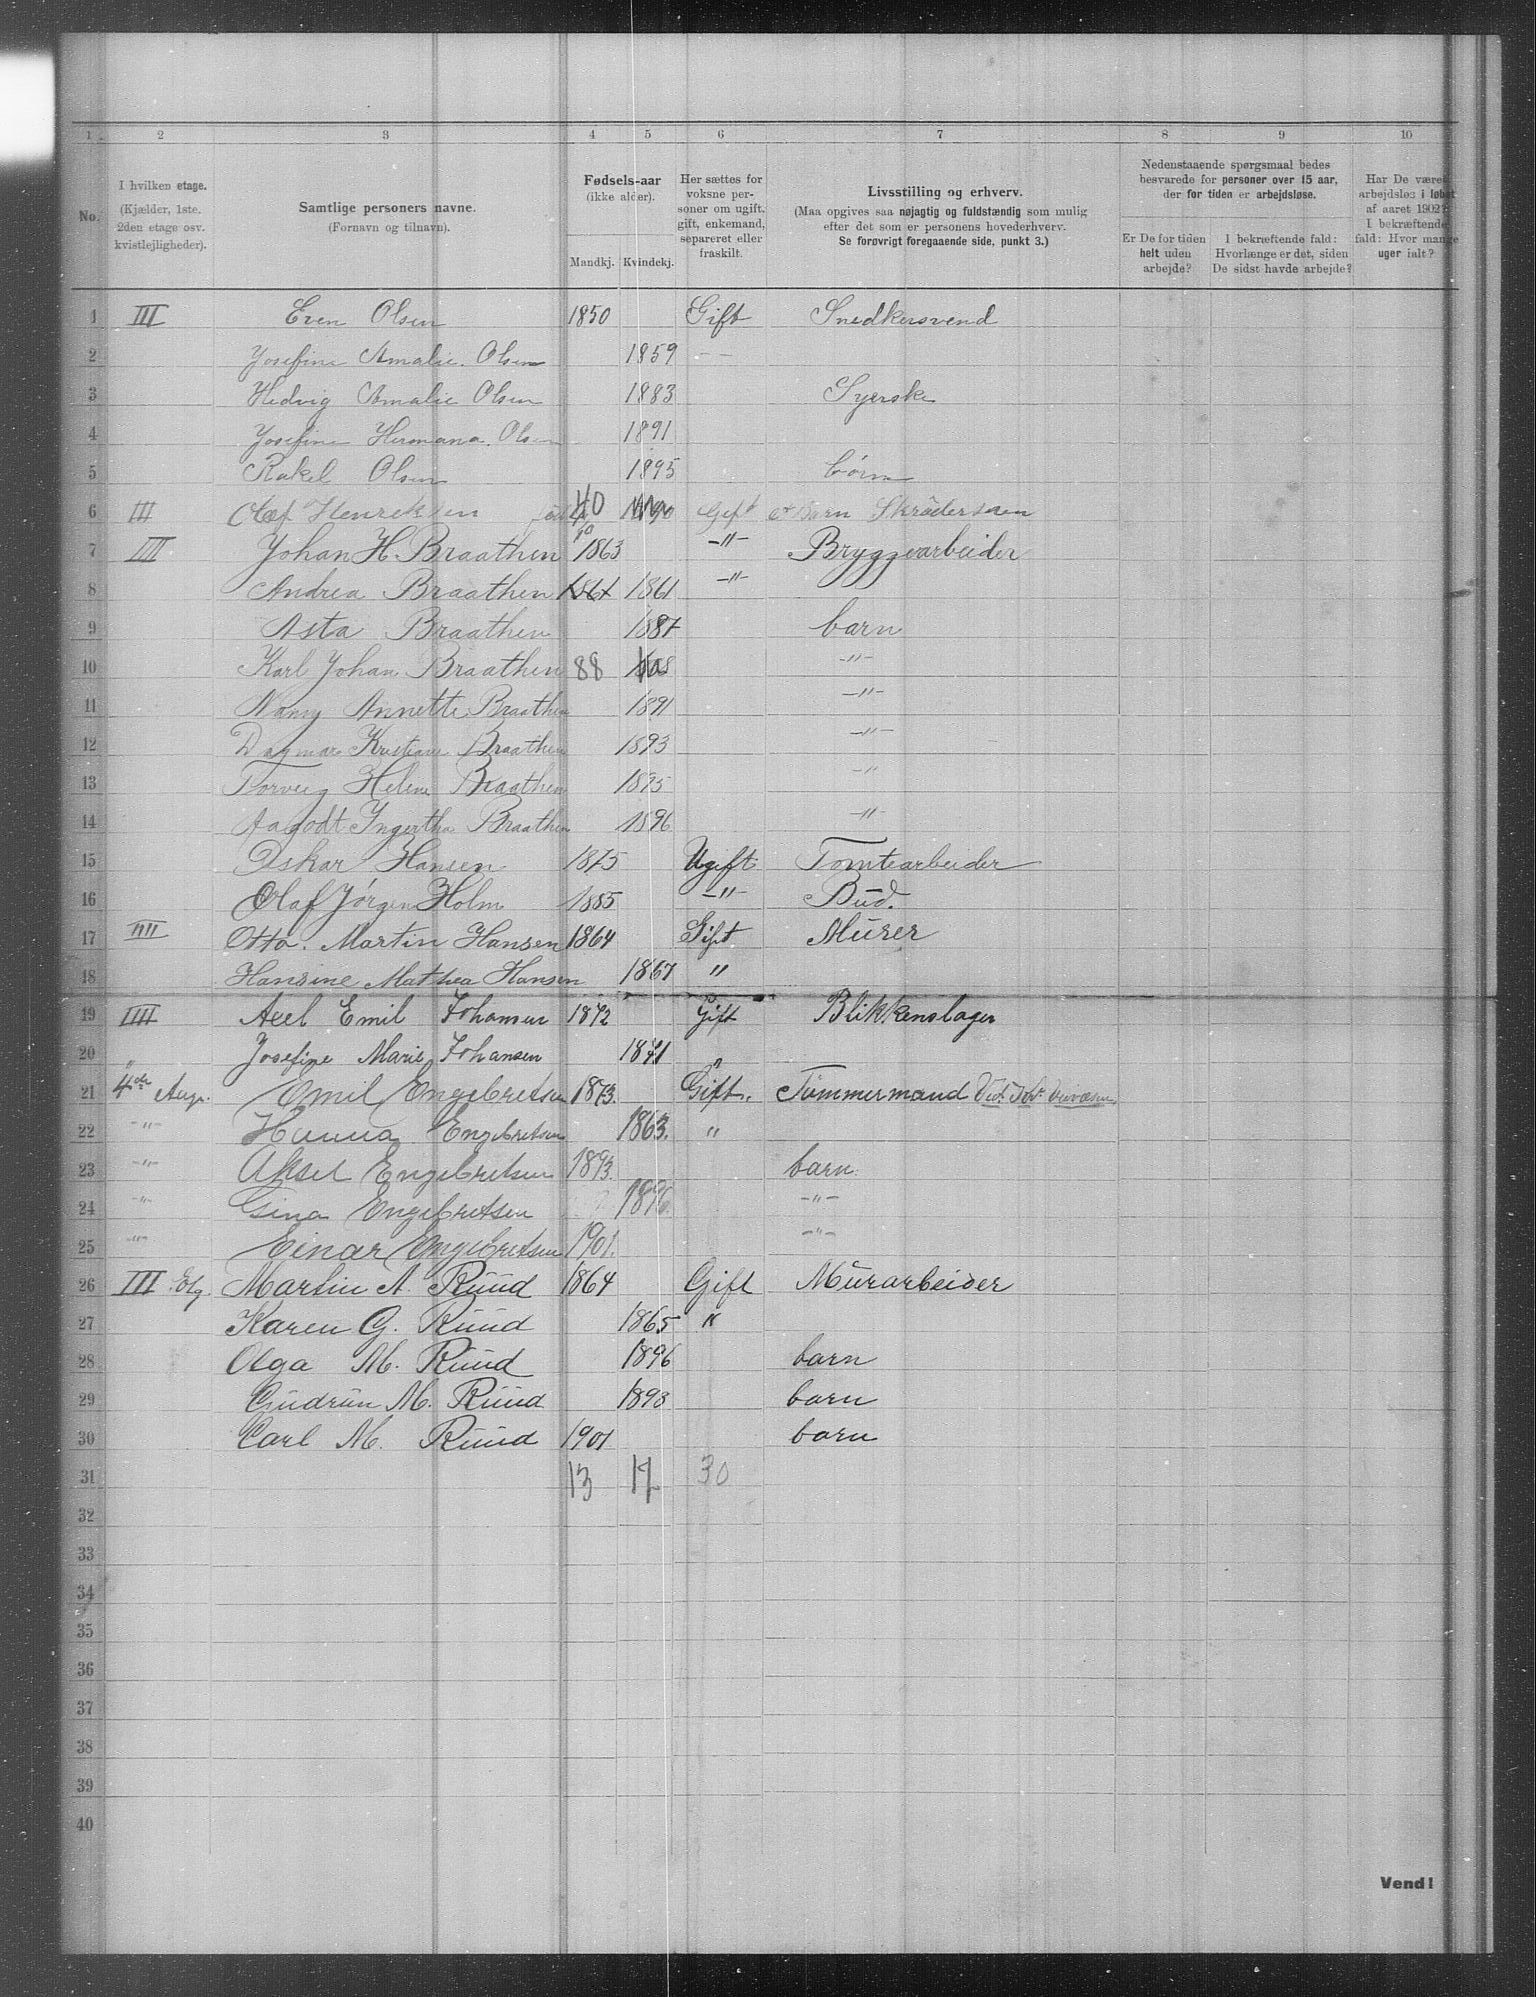 1 2 3 4 5 6 7 8 9 10
No.
I hvilken etage.
(Kjælder, 1ste,
2den etage osv.
kvistlejligheder).
Samtlige personers navne.
(Fornavn og tilnavn).
Fødsels-aar
(ikke alder).
Mandkj. Kvindekj.
Her sættes for
voksne per-
soner om ugift,
gift, enkemand,
separeret eller
fraskilt.
Livsstilling og erhverv.
(Maa opgives saa nøjagtig og fuldstændig som mulig
efter det som er personens hovederhverv.
Se forøvrigt foregaaende side, punkt 3.)
Nedenstaaende spørgsmaal bedes
besvarede for personer over 15 aar,
der for tiden er arbejdsløse.
Er De for tiden
helt uden
arbejde?
I bekræftende fald:
Hvorlænge er det, siden
De sidst havde arbejde?
Har De været
arbejdsløs i løbet
af aaret 1902?
I bekræftende
fald: Hvor mange
uger ialt?
1 III Even Olsen 1850 Gift Snedkersvend
2 Josefine Amalie Olsen 1859 — —
3 Hedvig Amalie Olsen 1883 Syerske
4 Josefine Hermana Olsen 1891
5 Rakel Olsen 1895 börn
6 III Olaf Henreksen 40 Gift Barn Skrädersven
7 IIII Johan H. Braathen 1863 -"- Bryggearbeider
8 Andrea Braathen 1861 1861 -"-
9 Asta Braathen 1887 barn
10 Karl Johan Braathen 88 -"-
11 Nany Annette Braathen 1891 -"-
12 Dagmar Kristiane Braathen 1893 -"-
13 Torveig Heline Braathen 1895 -"
14 Aagodt Ingertha Braathen 1896 -"-
15 Oskar Hansen 1875 Ugift Tomtearbeider
16 Olaf Jørgen Holm 1885 -"- Bud.
17 IIII Otto. Martin Hansen 1864 Gift Murer
18 Hansine Mathea Hansen 1867 "
19 IIII Axel Emil Johansen 1872 Gift Blikkenslager
20 " Josefine Marie Johansen 1871 "
21 4de Emil Engebretsen 1873. Gift. Tömmermand
22 -"- Hanna Engebretsen 1863. "
23 -"- Aksel Engebretsen 1893. barn.
24 -"- Gina Engebretsen 1896. -"-
25 -"- Einar Engebretsen 1901. -"-
26 III Etg. Martin A. Ruud 1864 Gift Murarbeider
27 Karen G. Ruud 1865 "
28 Olga M. Ruud 1896 barn
29 Gudrun M. Ruud 1898 barn
30 Carl M. Ruud 1901 barn
31 13 17 30
32
33
34
35
36
37
38
39
40
Vend!